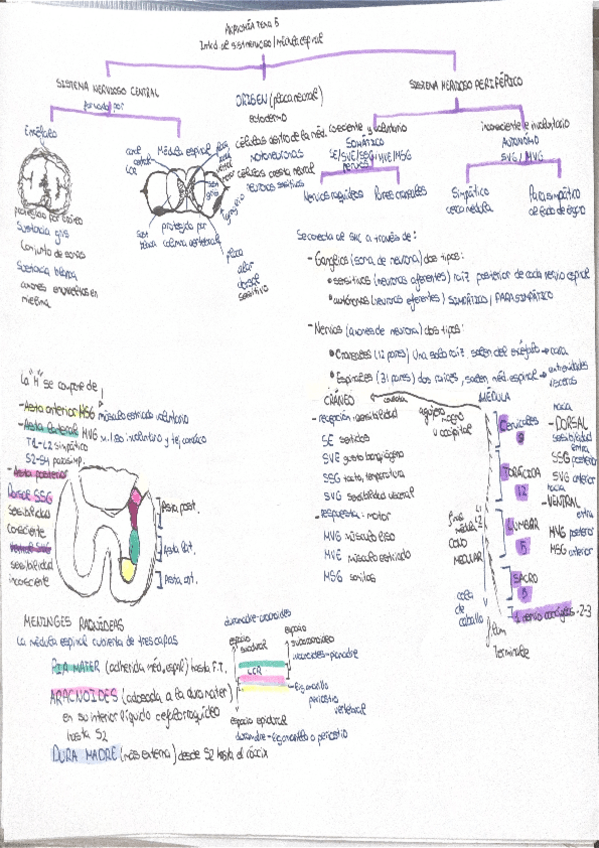 ANATOMÍA TEMA 5
Introd. al sist. nervioso / Médula espinal
SISTEMA NERVIOSO CENTRAL
formado por
ORIGEN (placa neural)
Ectodermo
SISTEMA NERVIOSO PERIFÉRICO
Encéfalo
Médula espinal
LCR
protegido por cráneo
Sustancia gris
Conjunto de somas
Sustancia blanca
axones envueltos en
mielina
protegido por
columna vertebral
placa
alar
dorsal
sensitivo
células dentro de la méd.
motoneuronas
células cresta neural
neuronas sensitivas
consciente y voluntario
SOMÁTICO
SE/SVE/SSG/MVE/MSG
nervios
Nervios raquídeos
Pares craneales
inconsciente e involuntario
AUTÓNOMO
SVG / MVG
Simpático
cerca médula
Parasimpático
al lado de órgano
Se conecta al SNC a través de:
- Ganglios (soma de neurona) dos tipos:
• sensitivos (neuronas aferentes) raíz posterior de cada nervio espinal
• autónomos (neuronas eferentes) SIMPÁTICO / PARASIMPÁTICO
- Nervios (axones de neurona) dos tipos:
• Craneales (12 pares) Una sola raíz salen del encéfalo → cara
• Espinales (31 pares) dos raíces, salen méd. espinal → extremidades
vísceras
La "H" se compone de:
- Asta anterior MSG músculo estriado voluntario
- Asta lateral MVG m. liso involuntario y tej. cardíaco
T1-L2 simpático
S2-S4 parasimp.
- Asta posterior
Dorsal SSG
sensibilidad
consciente
Ventral SVG
sensibilidad
inconsciente
Asta post.
Asta lat.
Asta ant.
CRÁNEO
agujero magno
occipital
MÉDULA
- recepción: sensibilidad
SE sentidos
SVE gusto
SSG tacto, temperatura
SVG sensibilidad visceral
- respuesta: motor
MVG músculo liso
MVE músculo estriado
MSG somitas
Cervicales
8
TORÁCICA
12
LUMBAR
5
SACRO
5
1 nervio coccígeo - 2-3
CONO
MEDULAR
cola
de
caballo
filum
Terminale
hacia
- DORSAL
sensibilidad
entra
SSG posterior
SVG anterior
hacia
- VENTRAL
MVG posterior
MSG anterior
MENINGES RAQUÍDEAS
La médula espinal cubierta de tres capas
PIA MATER (adherida méd. espinal) hasta F.T.
ARACNOIDES (adosada a la dura mater)
en su interior líquido cefalorraquídeo
hasta S2
DURA MADRE (más externa) desde S2 hasta el cóccix
duramadre-aracnoides
espacio
subdural
espacio
subaracnoideo
aracnoides-piamadre
LCR
lig. amarillo
periostio
vertebral
espacio epidural
duramadre-lig. amarillo o periostio